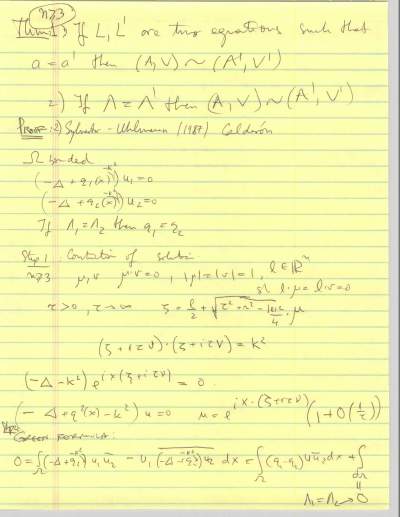 n≥3
Thm: 1) If L, L' are two equations such that
a = a' then (A,V) ~ (A',V')
2) If Λ = Λ' then (A,V) ~ (A',V')
PROOF: 2) Sylvester - Uhlmann (1987) Calderón
Ω bounded
(-Δ + q₁(x) - k²) u₁ = 0
(-Δ + q₂(x) - k²) u₂ = 0
If Λ₁ = Λ₂ then q₁ = q₂
Step 1 of solution
n≥3 μ, ν μ·ν = 0, |μ| = |ν| = 1, ℓ ∈ ℝⁿ
ℓ·μ = ℓ·ν = 0
τ > 0, τ → ∞ ζ = ℓ/2 + √(τ² + k² - |ℓ|²/4) · μ
(ζ + iτν)·(ζ + iτν) = k²
(-Δ - k²) e^{ix·(ζ+iτν)} = 0
(-Δ + q(x) - k²) u = 0 u = e^{ix·(ζ+iτν)} (1 + O(1/τ))
Step 2
GREEN FORMULA:
0 = ∫_Ω (-Δ + q₁ - k²) u₁ ū₂ - u₁ (-Δ + q₂ - k²) u₂ dx = ∫_Ω (q₁ - q₂) u₁ ū₂ dx + ∫_∂Ω
Λ₁ = Λ₂ → 0